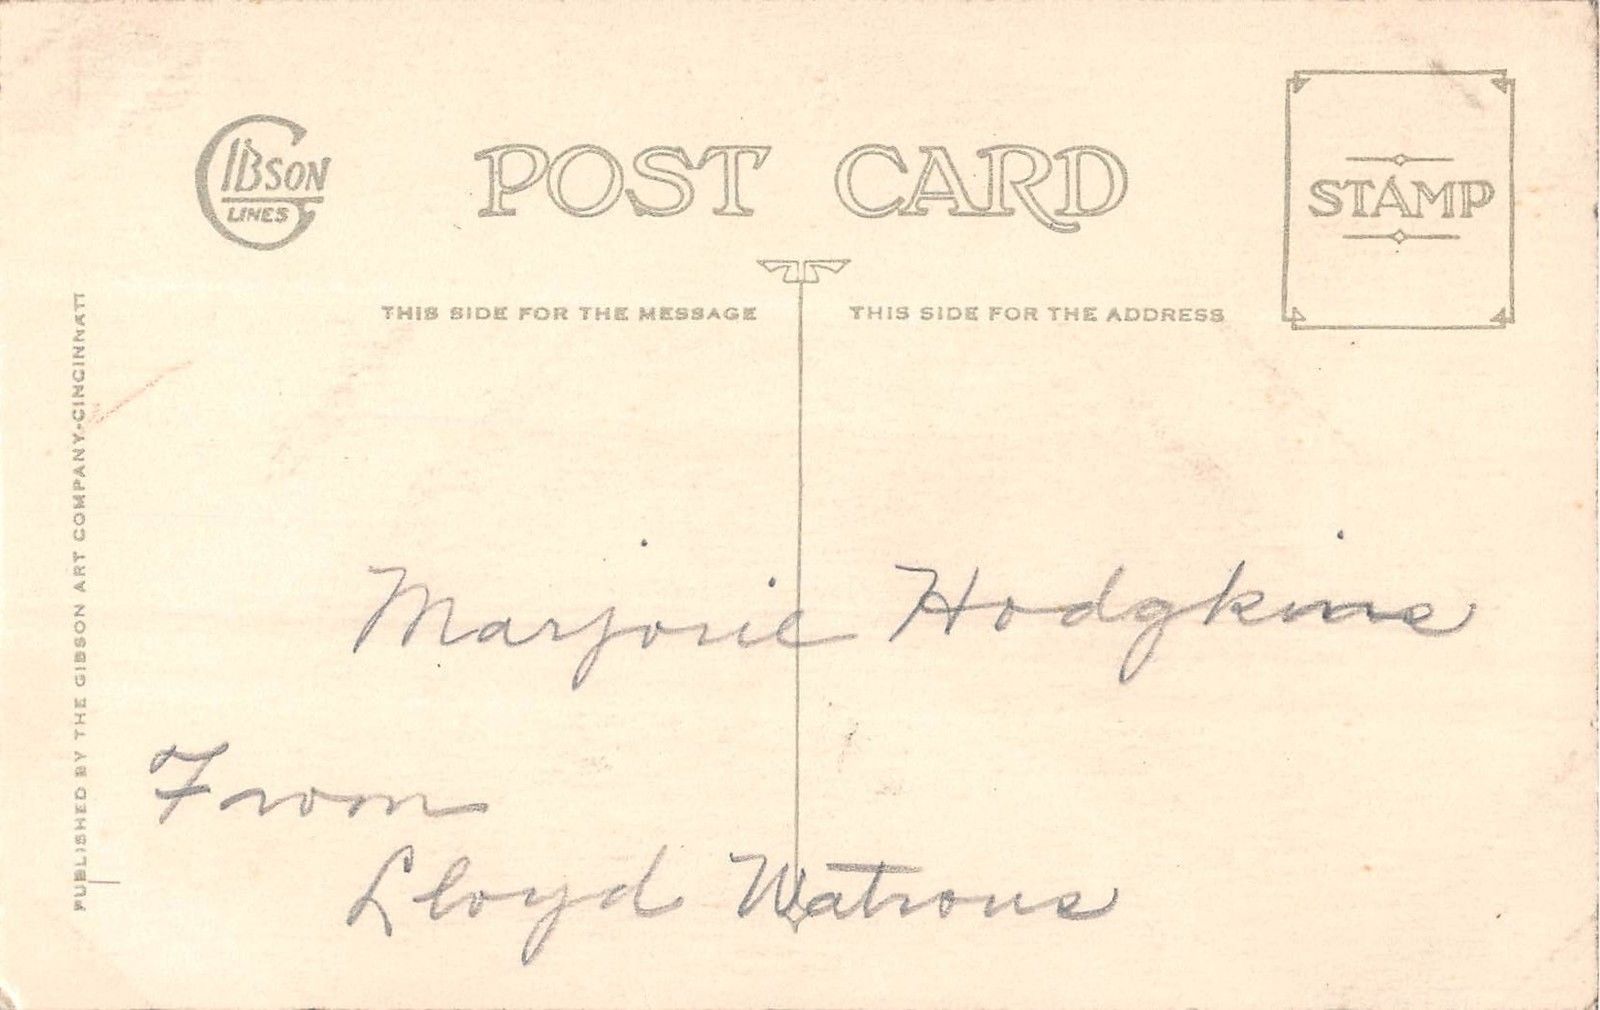 GIBSON
LINES
POST CARD
STAMP
THIS SIDE FOR THE MESSAGE
THIS SIDE FOR THE ADDRESS
PUBLISHED BY THE GIBSON ART COMPANY-CINCINNATI
Marjorie Hodgkins
From
Lloyd Watrous